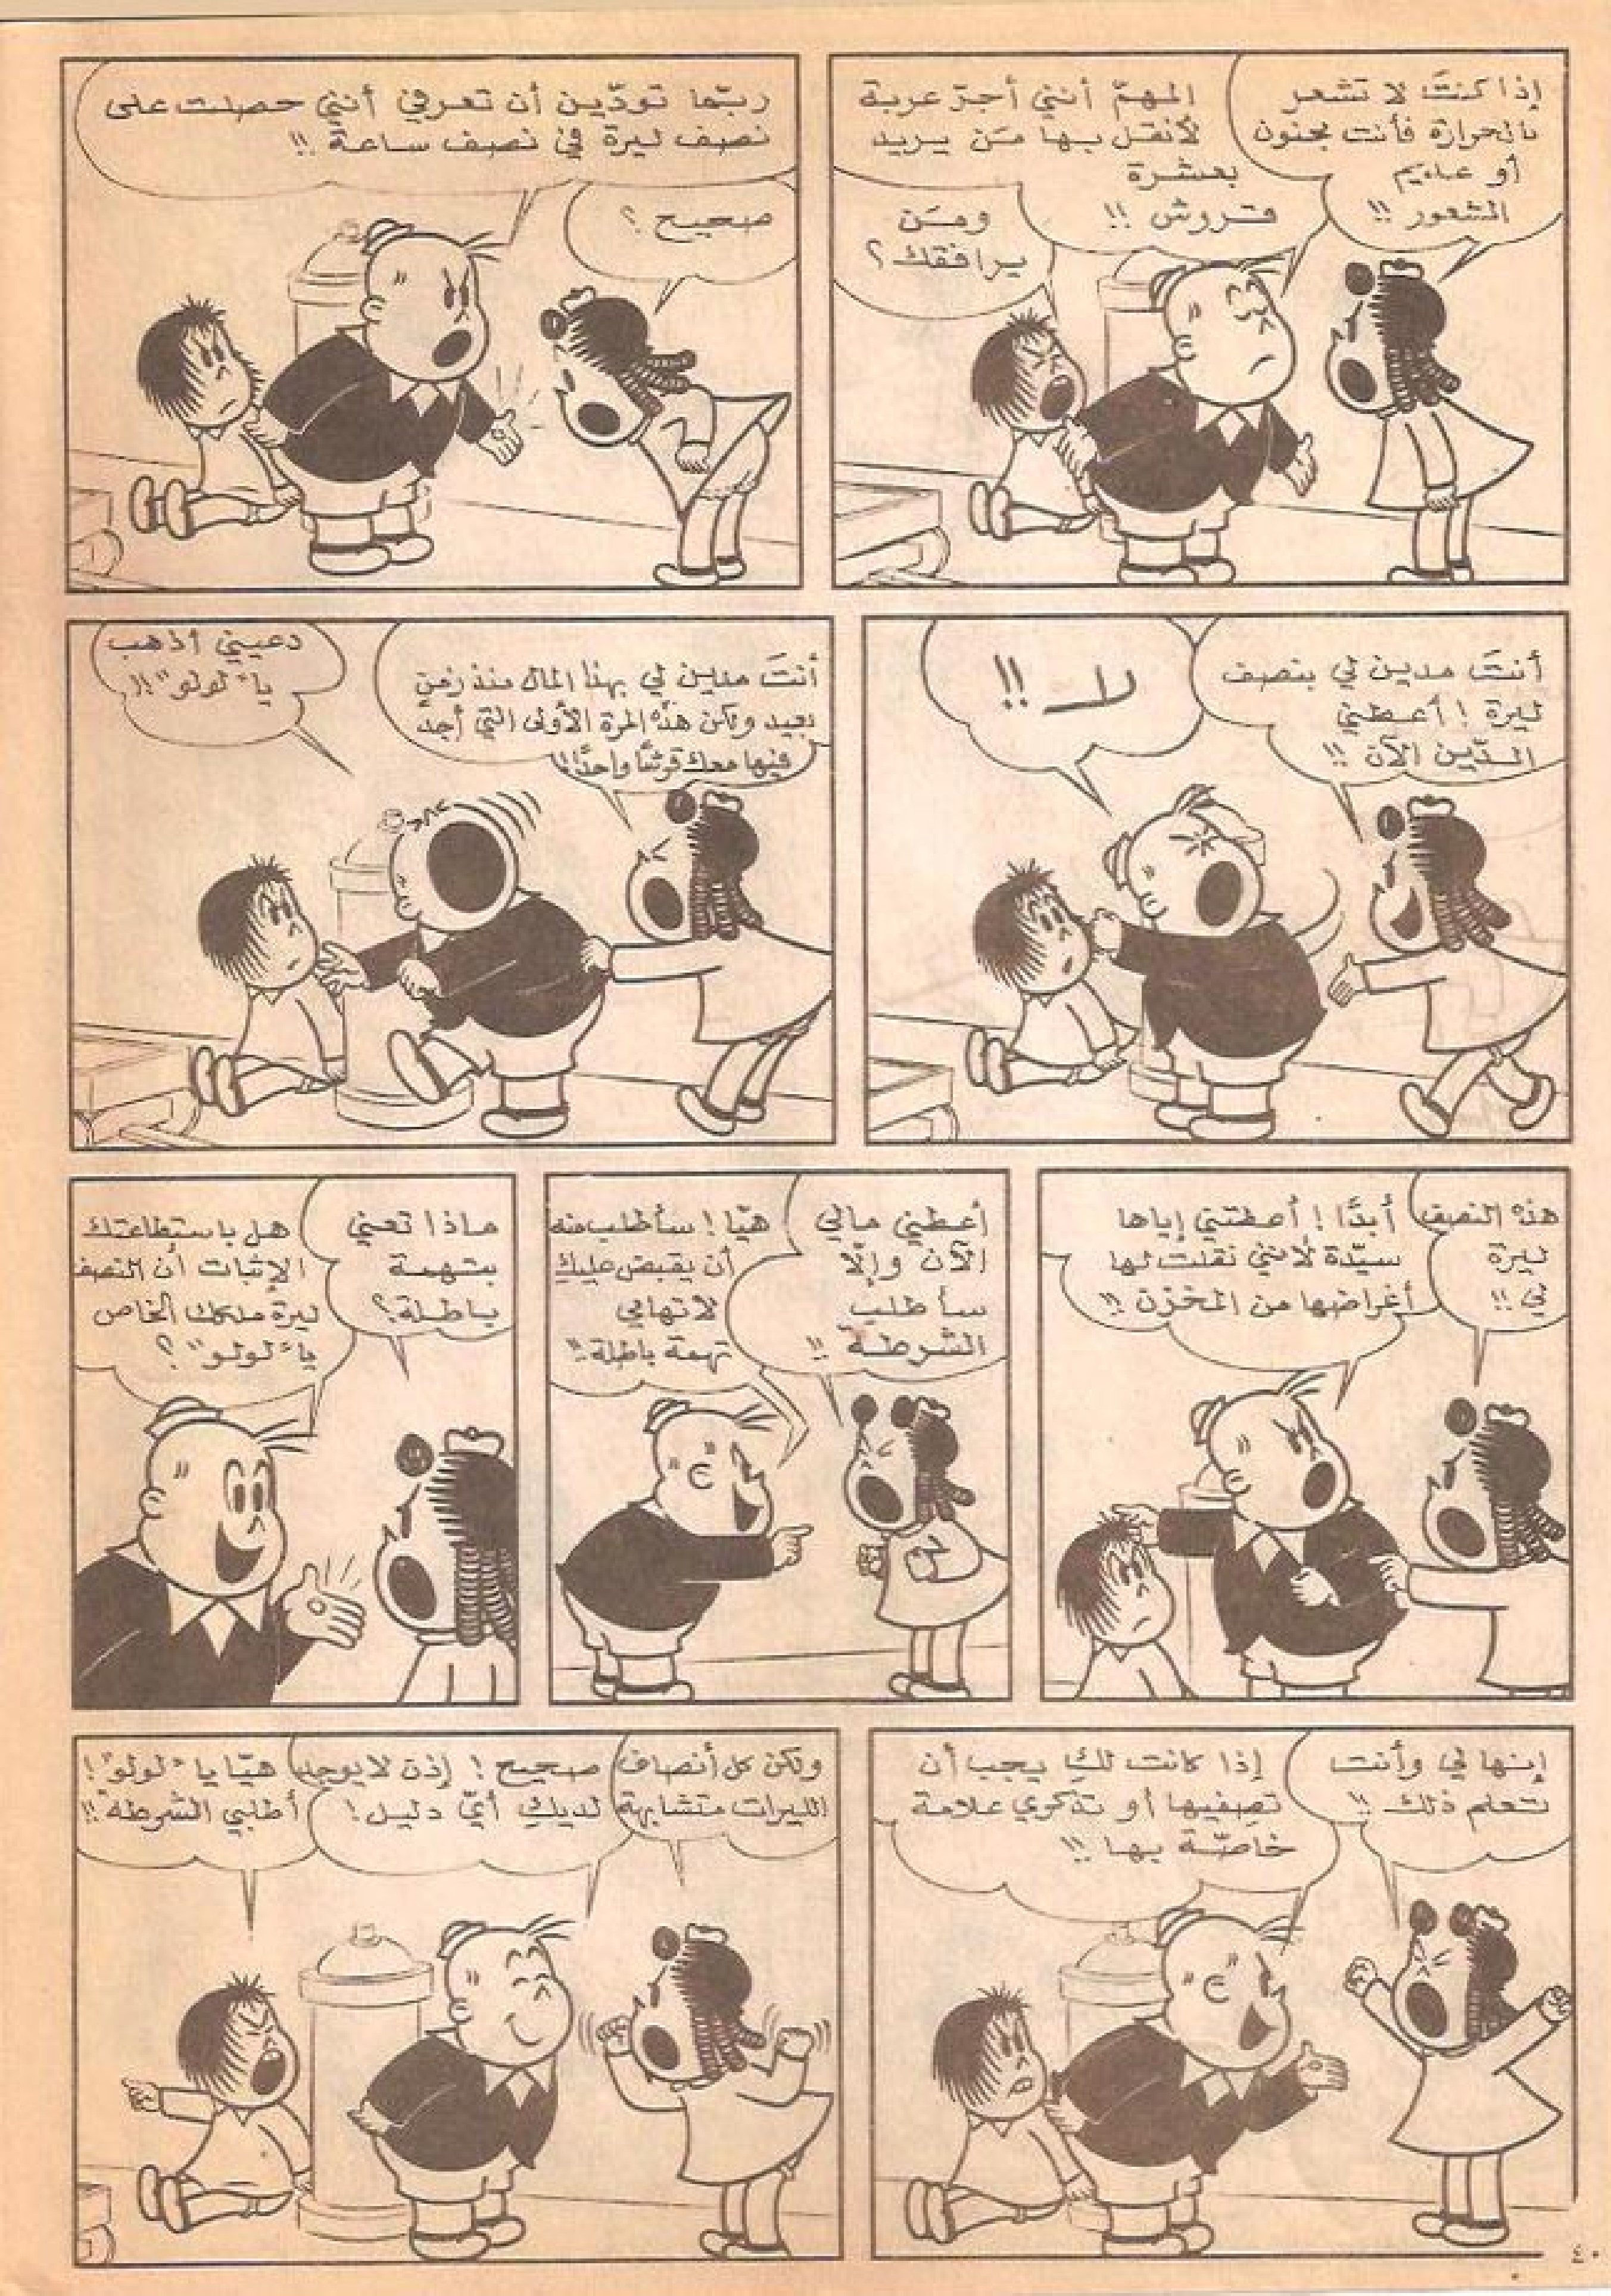 إذا كنتَ لا تشعر
بالحرارة فأنت مجنون
أو عديم
الشعور !!
المهمّ أنني أجرّ عربة
لأنقل بها مَن يريد
بعشرة
قروش !!
ومَن
يرافقك؟
ربّما تودّين أن تعرفي أنني حصلت على
نصف ليرة في نصف ساعة !!
صحيح ؟
أنتَ مدين لي بنصف
ليرة ! أعطني
الدّين الآن !!
لا !!
أنتَ مدين لي بهذا المال منذ زمنٍ
بعيد ولكن هذه المرة الأولى التي أجد
فيها معك قرشًا واحدًا!!
دعيني أذهب
يا "لولو" !!
هذه النصف
ليرة
لي !!
أبدًا ! أعطتني إياها
سيّدة لأنني نقلت لها
أغراضها من المخزن !!
أعطني مالي
الآن وإلّا
سأطلب
الشرطة !!
هيّا ! سأطلب منه
أن يقبض عليكِ
لاتهامي
تهمة باطلة !!
ماذا تعني
بتهمة
باطلة؟
هل باستطاعتك
الإثبات أن النصف
ليرة ملكك الخاص
يا "لولو" ؟
إنها لي وأنت
تعلم ذلك !!
إذا كانت لكِ يجب أن
تصفيها أو تذكري علامة
خاصّة بها !!
ولكن كل أنصاف
الليرات متشابهة
صحيح ! إذن لا يوجد
لديكِ أيّ دليل !
هيّا يا "لولو" !
أطلبي الشرطة !!
٤٠